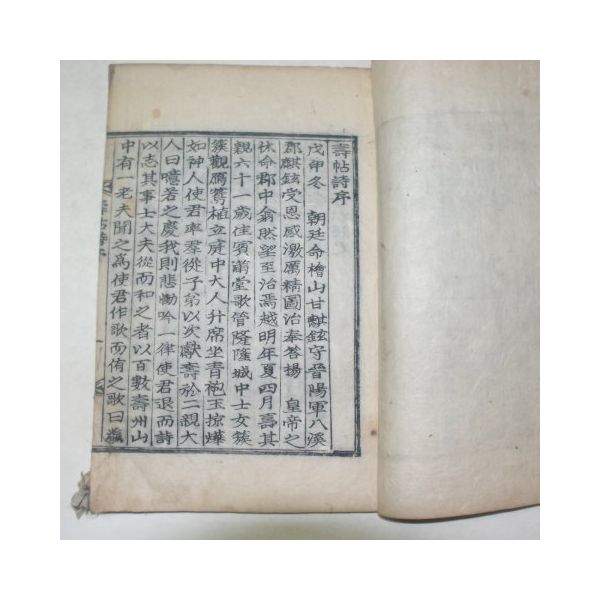 壽帖詩序
戊申冬 朝廷命檜山甘麒鉉守晉陽軍八溪
郡麒鉉受恩感激厲精圖治奉答揚 皇帝之
休命郡中翕然望至治焉越明年夏四月壽其
親六十一歲佳賓滿堂歌管隆隆城中士女簇
簇觀厲鶱植立庭中大人升席坐青袍玉掠燁
如神人使君率羣從子弟以次獻壽於二親大
人曰噫若之慶我則悲慟吟一律使君退而詩
以志其事士大夫從而和之者以百數壽州山
中有一老夫聞之爲使君作歌而侑之歌曰
壽帖詩序 一